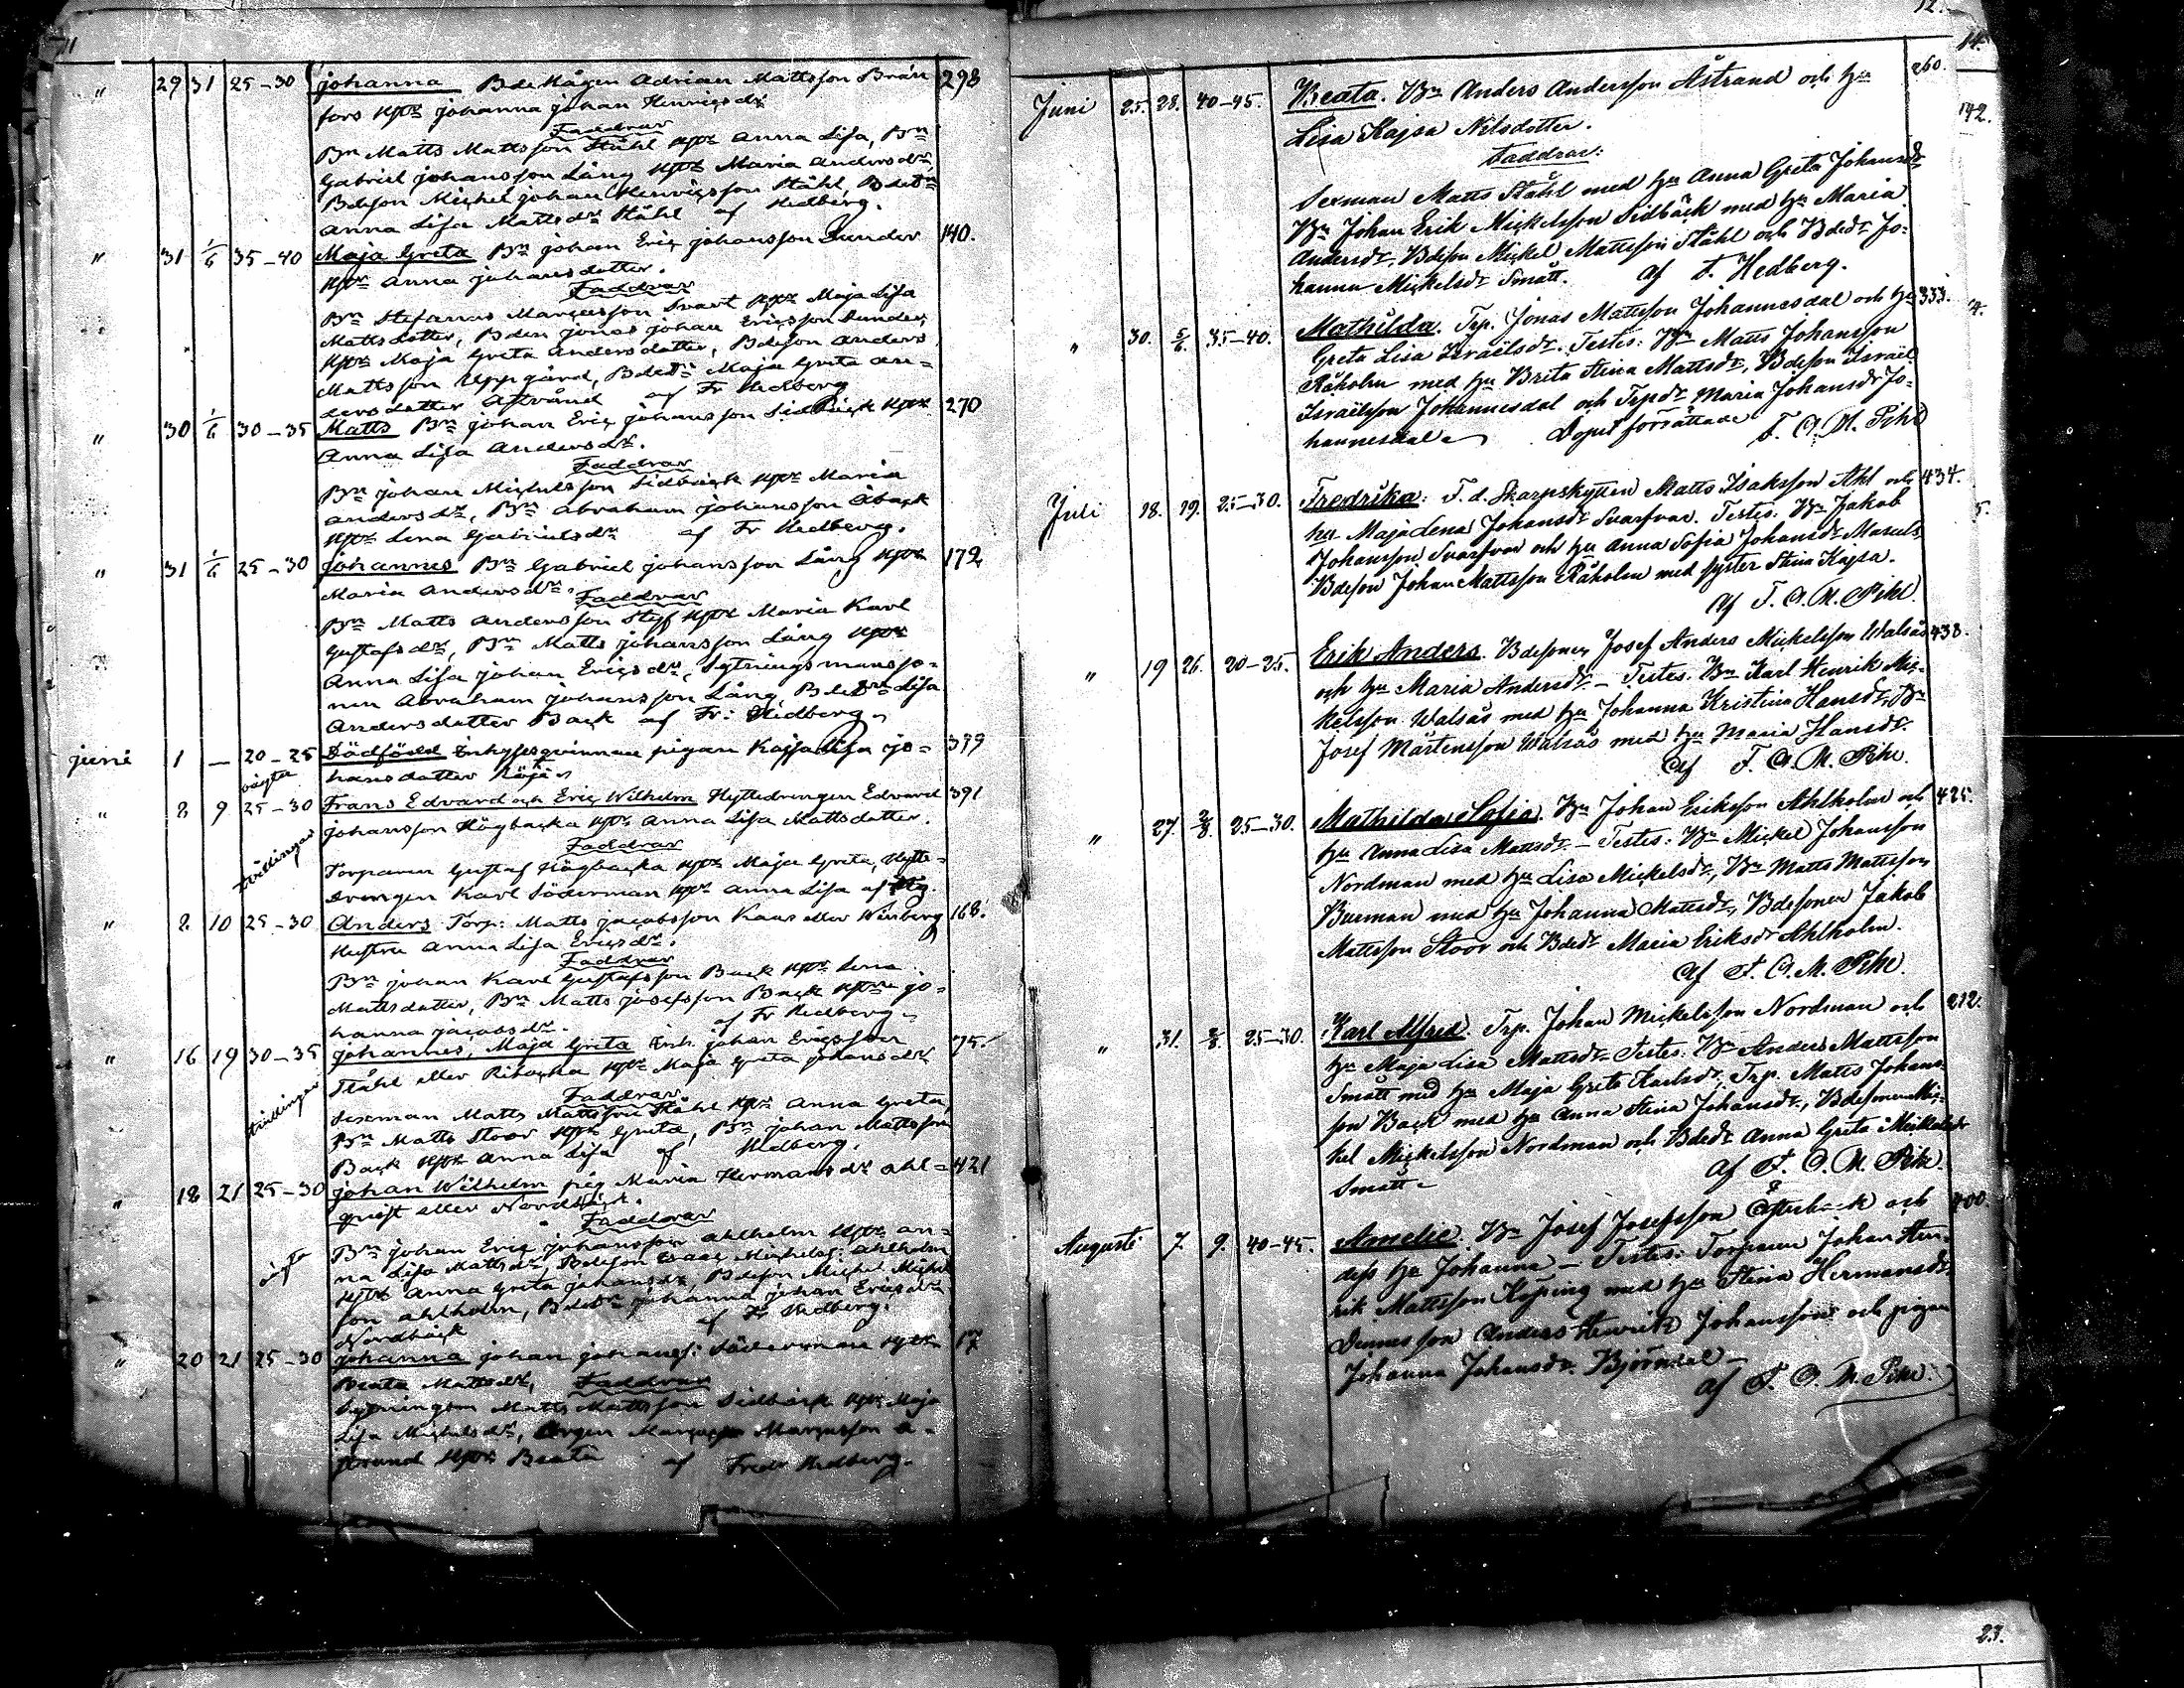 11
" 29 31 25-30 Johanna Bde Mågen Adrian Mattsson Brän 298
fors Hstr Johanna Johan Henrigsdr
Faddrar
Bn Matts Mattsson Ståhl Hstr Anna Lisa, Bn
Gabriel Johansson Lång Hstr Maria Andersdr
Bdeson Michel Johan Henrigsson Ståhl, Bdedn
Anna Lisa Mattsdr Ståhl af Hedberg.
" 31 1/6 35-40 Maja Greta Bn Johan Eric Johansson Sunder 140.
Hstr Anna Johansdotter.
Faddrar
Bn Stefanus Marcusson Svart Hstr Maja Lisa
Mattsdotter, Bden Jonas Johan Ericsson Sunder,
Hstr Maja Greta Andersdotter, Bdeson Anders
Mattsson Uppgård, Bdedr Maja Greta An=
dersdotter Åstrand af Fr Hedberg
" 30 1/6 30-35 Matts Bn Johan Eric Johansson Sidbäck Hstr 270
Anna Lisa Andersdr.
Faddrar
Bn Johan Michelsson Sidbäck Hstr Maria
Andersdr, Bn Abraham Johansson Åback
Hstr Lena Gabrielsdr af Fr Hedberg.
" 31 1/6 25-30 Johannes Bn Gabriel Johansson Lång Hstr 172
Maria Andersdr. Faddrar
Bn Matts Andersson Styf Hstr Maria Karl
Gustafsdr, Bn Matts Johansson Lång Hstr
Anna Lisa Johan Ericsdr, Sytningsmansso=
nen Abraham Johansson Lång Bdedr Lisa
Andersdotter Back af Fr: Hedberg
juni 1 — 20-25 Dödfödd Inhysesqvinnan pigan Kajsa Lisa Jo= 379
oägta hansdotter Röjs
" 8 9 25-30 Frans Edvard och Eric Wilhelm Hyttedrengen Edvard 391
tvillingar Johansson Högbacka Hstr Anna Lisa Mattsdotter.
Faddrar
Torparen Gustaf Högbacka Hstr Maja Greta, Hytte=
drengen Karl Söderman Hstr Anna Lisa af Hg.
" 8 10 25-30 Anders Torp: Matts Jacobsson Kaas eller Winberg 168.
Hustru Anna Lisa Ericsdr.
Faddrar
Bn Johan Karl Gustafsson Back Hstr Lena
Mattsdotter, Bn Matts Josefsson Back Hstr Jo=
hanna Jacobsdr. af Fr Hedberg
" 16 19 30-35 Johannes, Maja Greta Inh. Johan Ericsson 75.
tvillingar Ståhl eller Ribacka Hstr Maja Greta Johansdr
Faddrar
Sexman Matts Mattsson Ståhl Hstr Anna Greta,
Bn Matts Stoor Hstr Greta, Bn Johan Mattsson
Back Hstr Anna Lisa af Hedberg.
" 18 21 25-30 Johan Wilhelm pig Maria Hermansdr Ahl= 421
qvist eller Nordbäck.
oägta Faddrar
Bn Johan Eric Johansson Ahlholm Hstr An=
na Lisa Mattsdr, Bdeson Isaac Michelss: Ahlholm
Hstr Anna Greta Johansdr, Bdeson Michel Michel
son Ahlholm, Bdedr Johanna Johan Ericsdr
Nordbäck af Fr Hedberg.
" 20 21 25-30 Johanna Johan Johanss: Söderman Hstr 17
Beata Mattsdr, Faddrar
Sytningsm Matts Mattsson Sidbäck Hstr Maja
Lisa Michelsdr, Marcusson Å=
strand Hstr Beata af Fredr Hedberg.
12.
Juni 25. 28. 40-45. Beata. Bn Anders Andersson Åstrand och hu 260.
Lisa Kajsa Nilsdotter.
Faddrar:
Sexman Matts Ståhl med hu Anna Greta Johansdr
Bn Johan Erik Mickelsson Sidbäck med hu Maria
Andersdr, Bdeson Mickel Mattsson Ståhl och Bdedr Jo=
hanna Mickelsdr Smått. af F. Hedberg.
" 30. 5/6. 35-40. Mathilda. Trp. Jonas Mattsson Johannesdal och hu 333.
Greta Lisa Israëlsdr. Testes: Bn Matts Johansson
Råholm med hu Brita Stina Mattsdr, Bdeson Israël
Israëlsson Johannesdal och Trpdr Maria Johansdr Jo=
hannesdal Dopet förrättade F. O. M. Pihl
Juli 18. 19. 25-30. Fredrika. F. d. Skarpskytten Matts Isaksson Ahl och 434.
hu Maja Lena Johansdr Svarfvar. Testes. Bn Jakob
Johansson Svarfvar och hu Anna Sofia Johansdr
Bdeson Johan Mattsson Råholm med syster Stina Kajsa.
af F. O. M. Pihl.
" 19 26. 20-25. Erik Anders. Bdesonen Josef Anders Mickelsson Walsås 438.
och hu Maria Andersdr. — Testes. Bn Karl Henrik Mic=
kelsson Walsås med hu Johanna Kristina Hansdr, Bn
Josef Mårtensson Walsås med hu Maria Hansdr.
af F. O. M. Pihl.
" 27. 2/8. 25-30. Mathilda Sofia. Bn Johan Eriksson Ahlholm och 425.
hu Anna Lisa Mattsdr. — Testes: Bn Mickel Johansson
Nordman med hu Lisa Mickelsdr, Bn Matts Mattsson
Buerman med hu Johanna Mattsdr, Bdesonen Jakob
Mattsson Stoor och Bdedr Maria Eriksdr Ahlholm.
af F. O. M. Pihl.
" 31. 2/8. 25-30. Karl Alfred. Trp. Johan Mickelsson Nordman och 212.
hu Maja Lisa Mattsdr. Testes. Bn Anders Mattsson
Smått med hu Maja Greta Karlsdr, Trp. Matts Johans
son Back med hu Anna Stina Johansdr, Bdesonen Mic=
kel Mickelsson Nordman och Bdedr Anna Greta Mickelsdr
Smått af F. O. M. Pihl.
Augusti 7. 9. 40-45. Amelie. Bn Josef Josefsson och 400.
dess hu Johanna — Testes: Torparen Johan Hen=
rik Mattsson Köping med hu Stina Hermansdr,
Anders Henrik Johansson och pigan
Johanna Johansdr. Björndal —
af F. O. M. Pihl.
14.
142.
4.
5.
23.